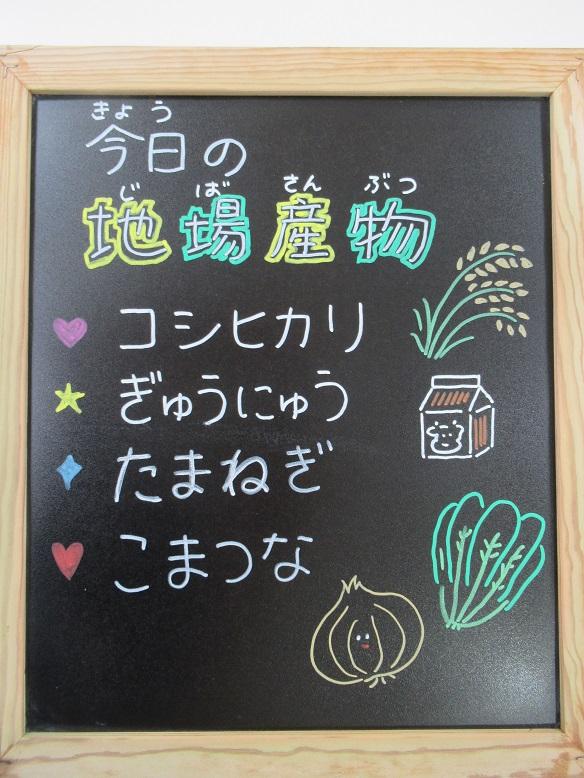 きょう
今日の
じばさんぶつ
地場産物
コシヒカリ
ぎゅうにゅう
たまねぎ
こまつな